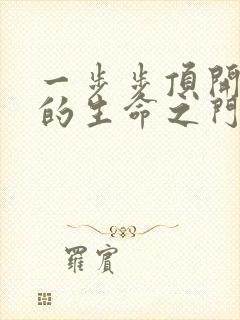 一步步頂開
的生命之門
羅賓